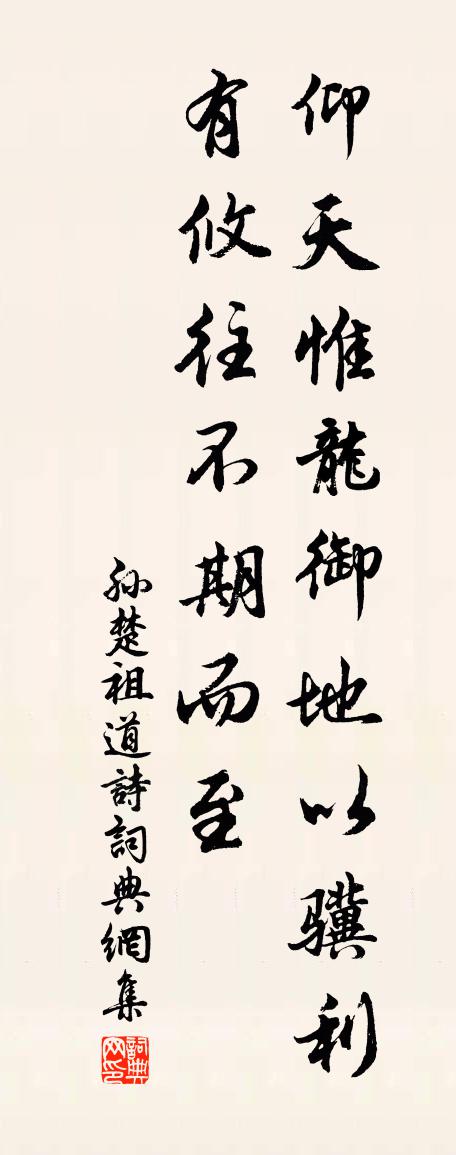 仰天惟龍御地以骥利
有攸往不期而至
孙楚祖道詩詞典網集
詞典网印